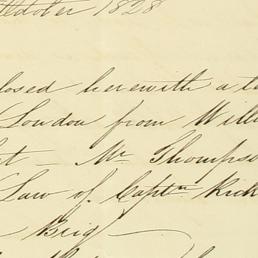 October 1828
closed herewith a
London from Will
— Mr Thompson
Law of Captn Rick
Brig